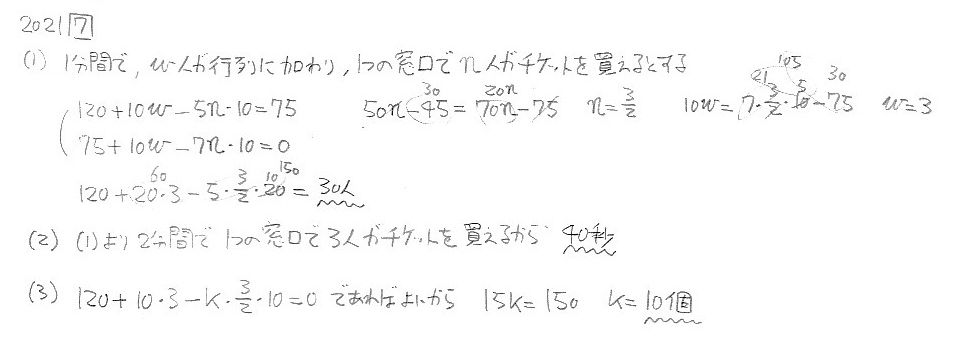 2021 7
(1) 1分間で, w人が行列に加わり, 1つの窓口でn人がチケットを買えるとする
120+10w-5n·10=75 50n-45=70n-75 30 20n n=3/2 10w=7·3/2·10-75 21 105 5 30 w=3
75+10w-7n·10=0
120+20·3-5·3/2·20=30人 60 10 150
(2) (1)より2分間で1つの窓口で3人がチケットを買えるから 40秒
(3) 120+10·3-k·3/2·10=0 であればよいから 15k=150 k=10個